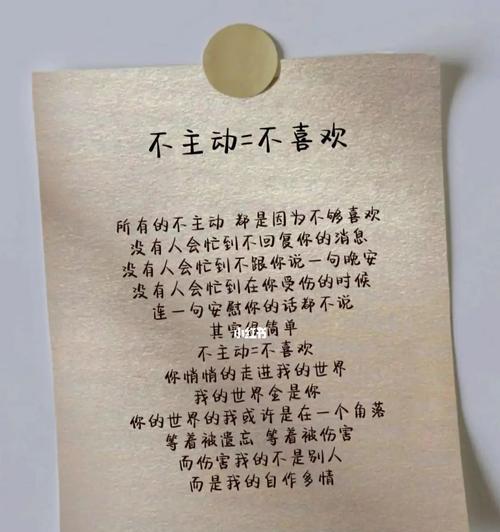 不主动=不喜欢
所有的不主动 都是因为不够喜欢
没有人会忙到不回复你的消息
没有人会忙到不跟你说一句晚安
没有人会忙到在你受伤的时候
连一句安慰你的话都不说
其实很简单
小红书
不主动=不喜欢
你悄悄的走进我的世界
我的世界全是你
你的世界的我或许是在一个角落
等着被遗忘 等着被伤害
而伤害我的不是别人
而是我的自作多情